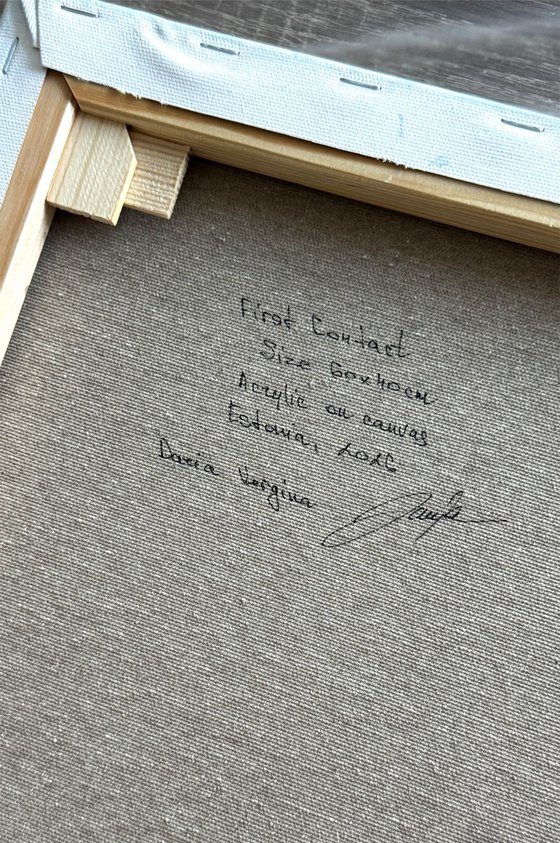 First Contact
Size 60x40cm
Acrylic on canvas
Estonia, 2026
Daria Vergina